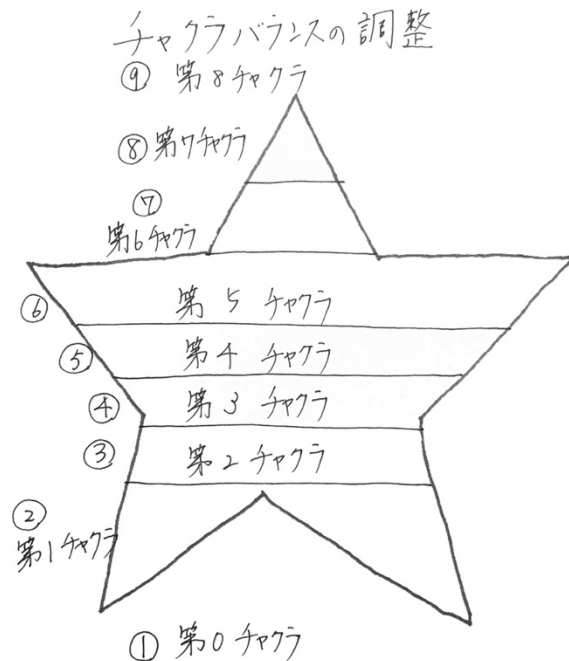 チャクラバランスの調整
⑨ 第8チャクラ
⑧ 第7チャクラ
⑦
第6チャクラ
⑥ 第5チャクラ
⑤ 第4チャクラ
④ 第3チャクラ
③ 第2チャクラ
②
第1チャクラ
① 第0チャクラ